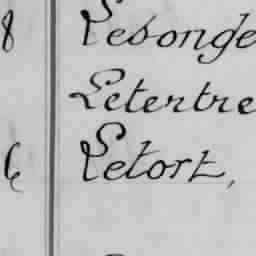 8 Lesonge
Letertre
6 Letort,